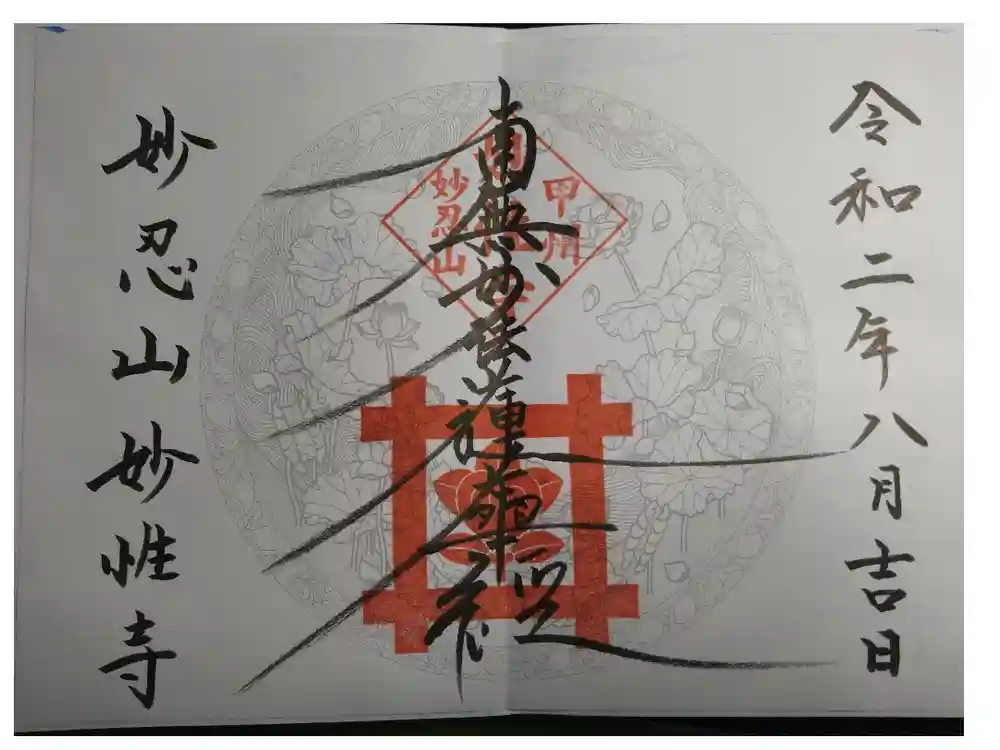 令和二年八月吉日
南無妙法蓮華経
甲州
妙忍山
妙忍山妙惟寺